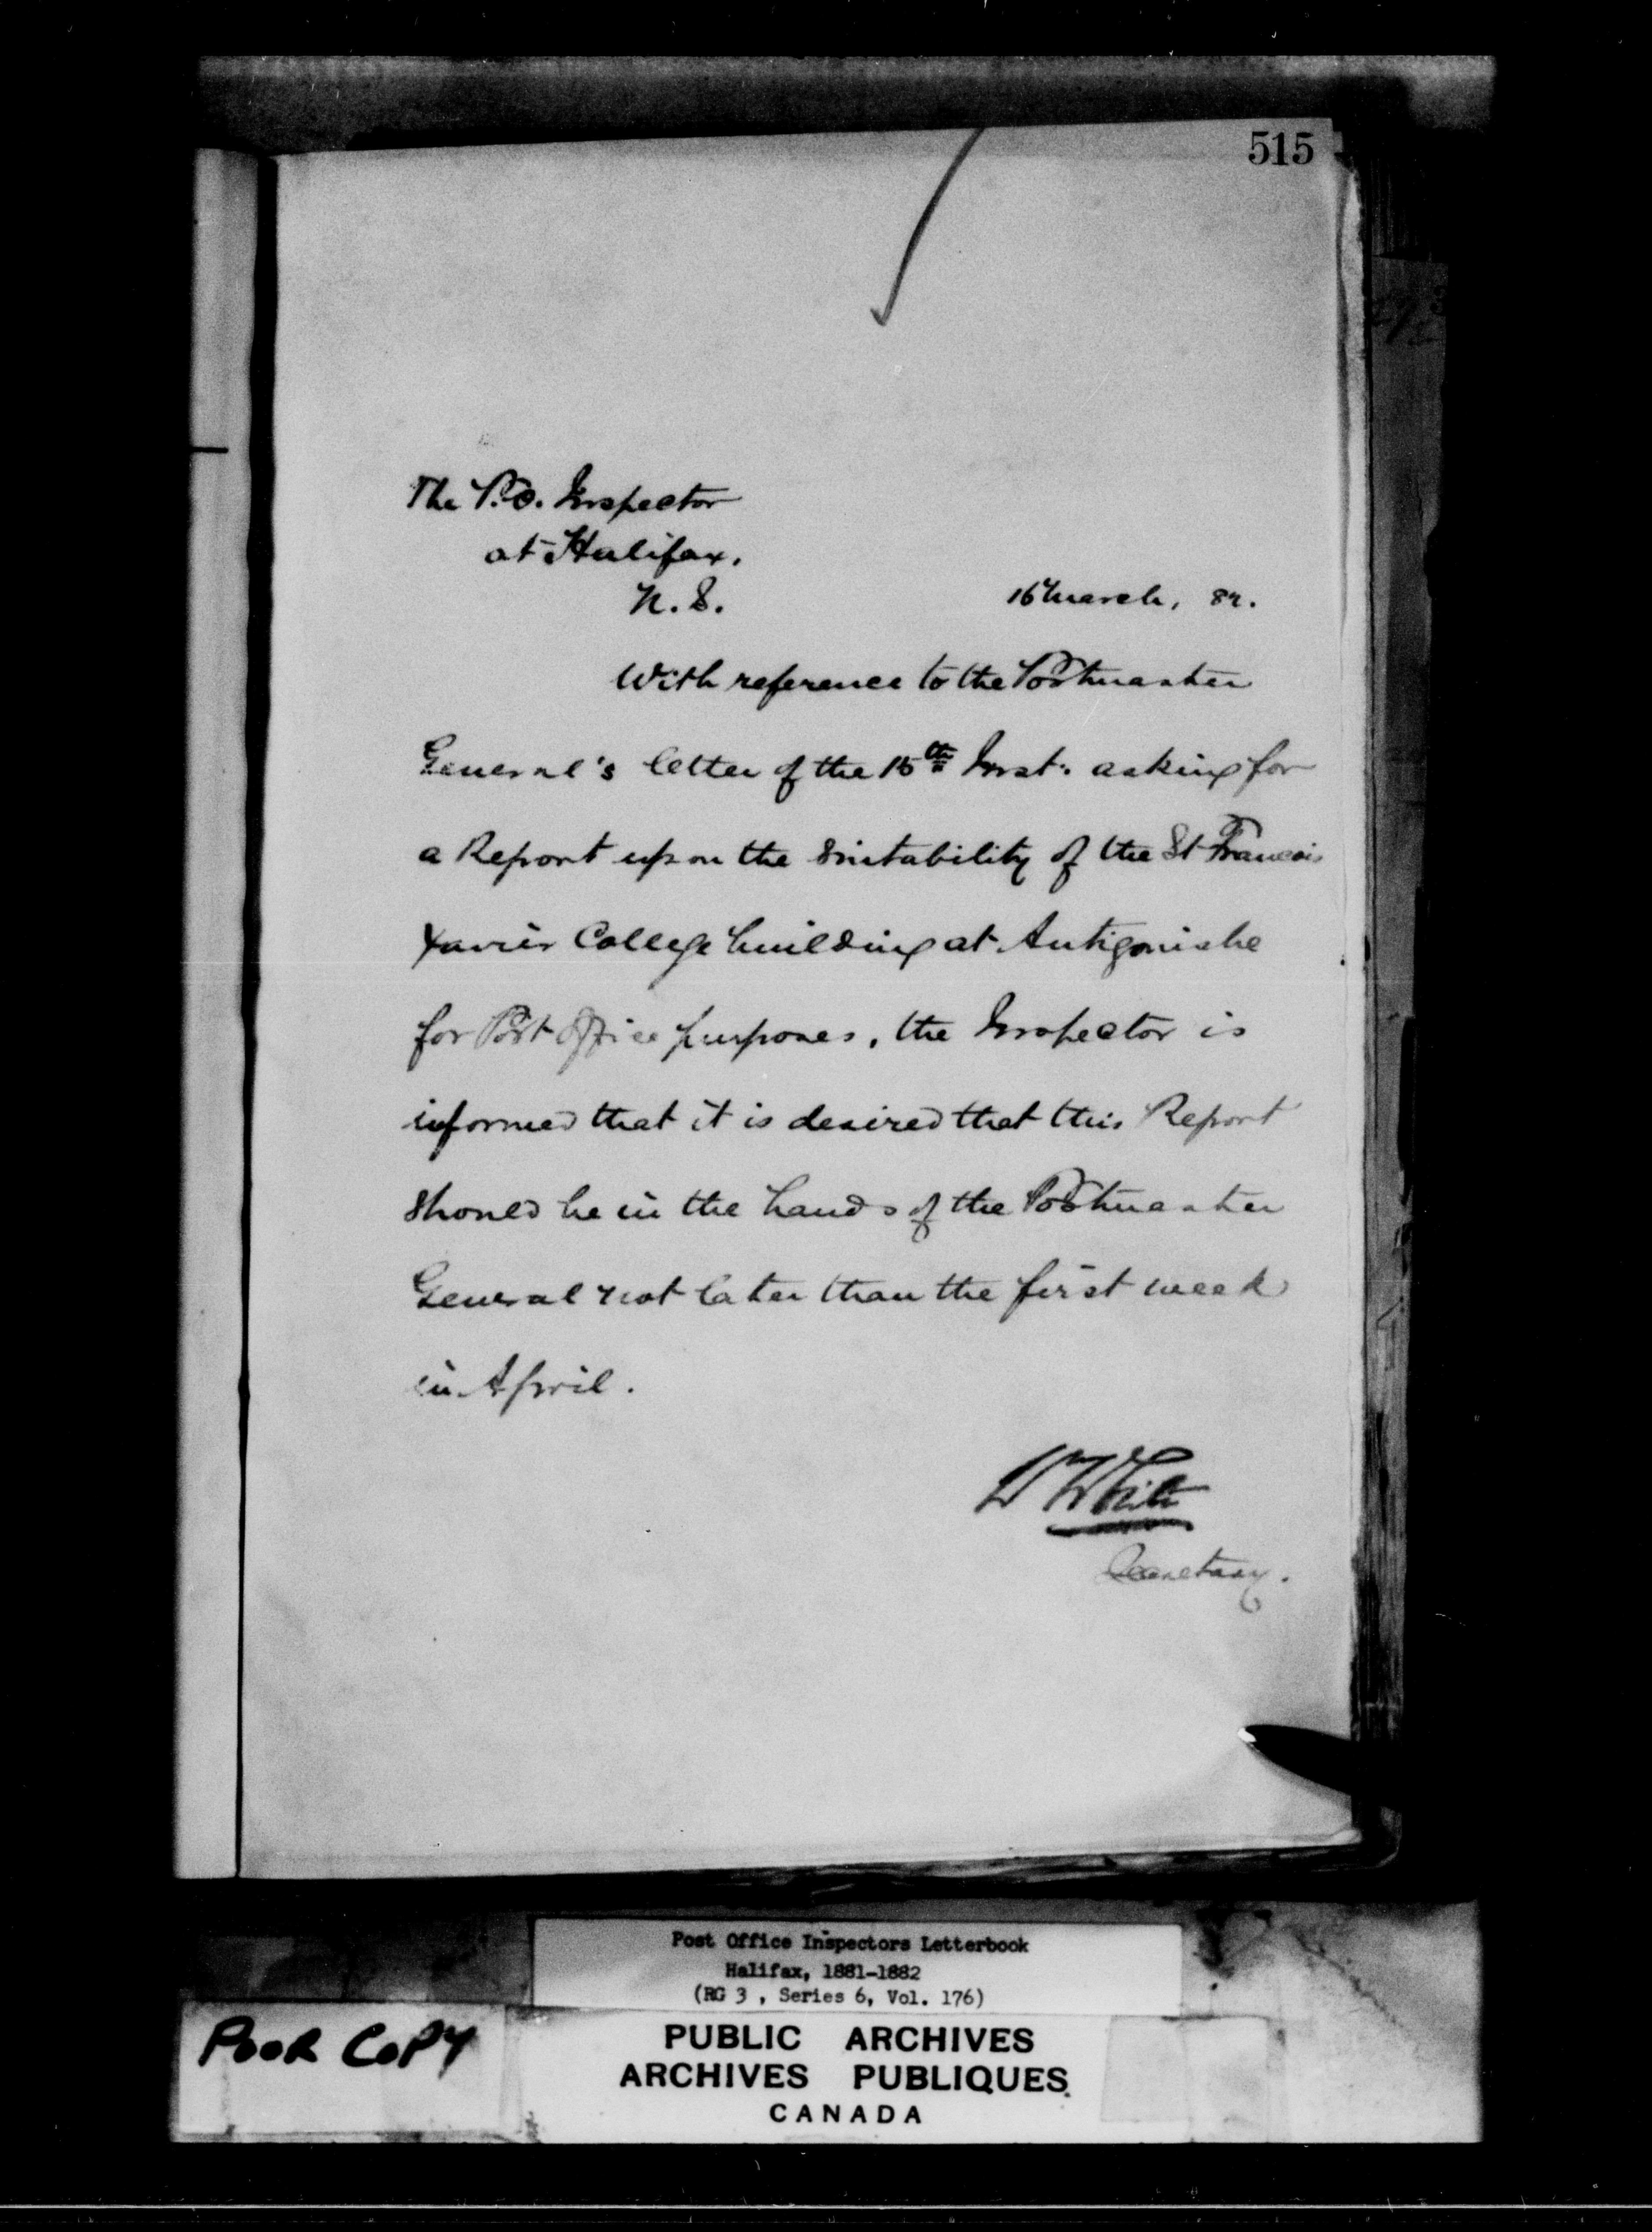 515
The P.O. Inspector
at Halifax,
N.S.
16 March, 82.
With reference to the Postmaster
General's letter of the 15th Inst: asking for
a Report upon the suitability of the St Francois
Xavier College building at Antigonishe
for Post Office purposes, the Inspector is
informed that it is desired that this Report
should be in the hands of the Postmaster
General not later than the first week
in April.
W White
Secretary.
Post Office Inspectors Letterbook
Halifax, 1881-1882
(RG 3 , Series 6, Vol. 176)
POOR COPY
PUBLIC ARCHIVES
ARCHIVES PUBLIQUES
CANADA